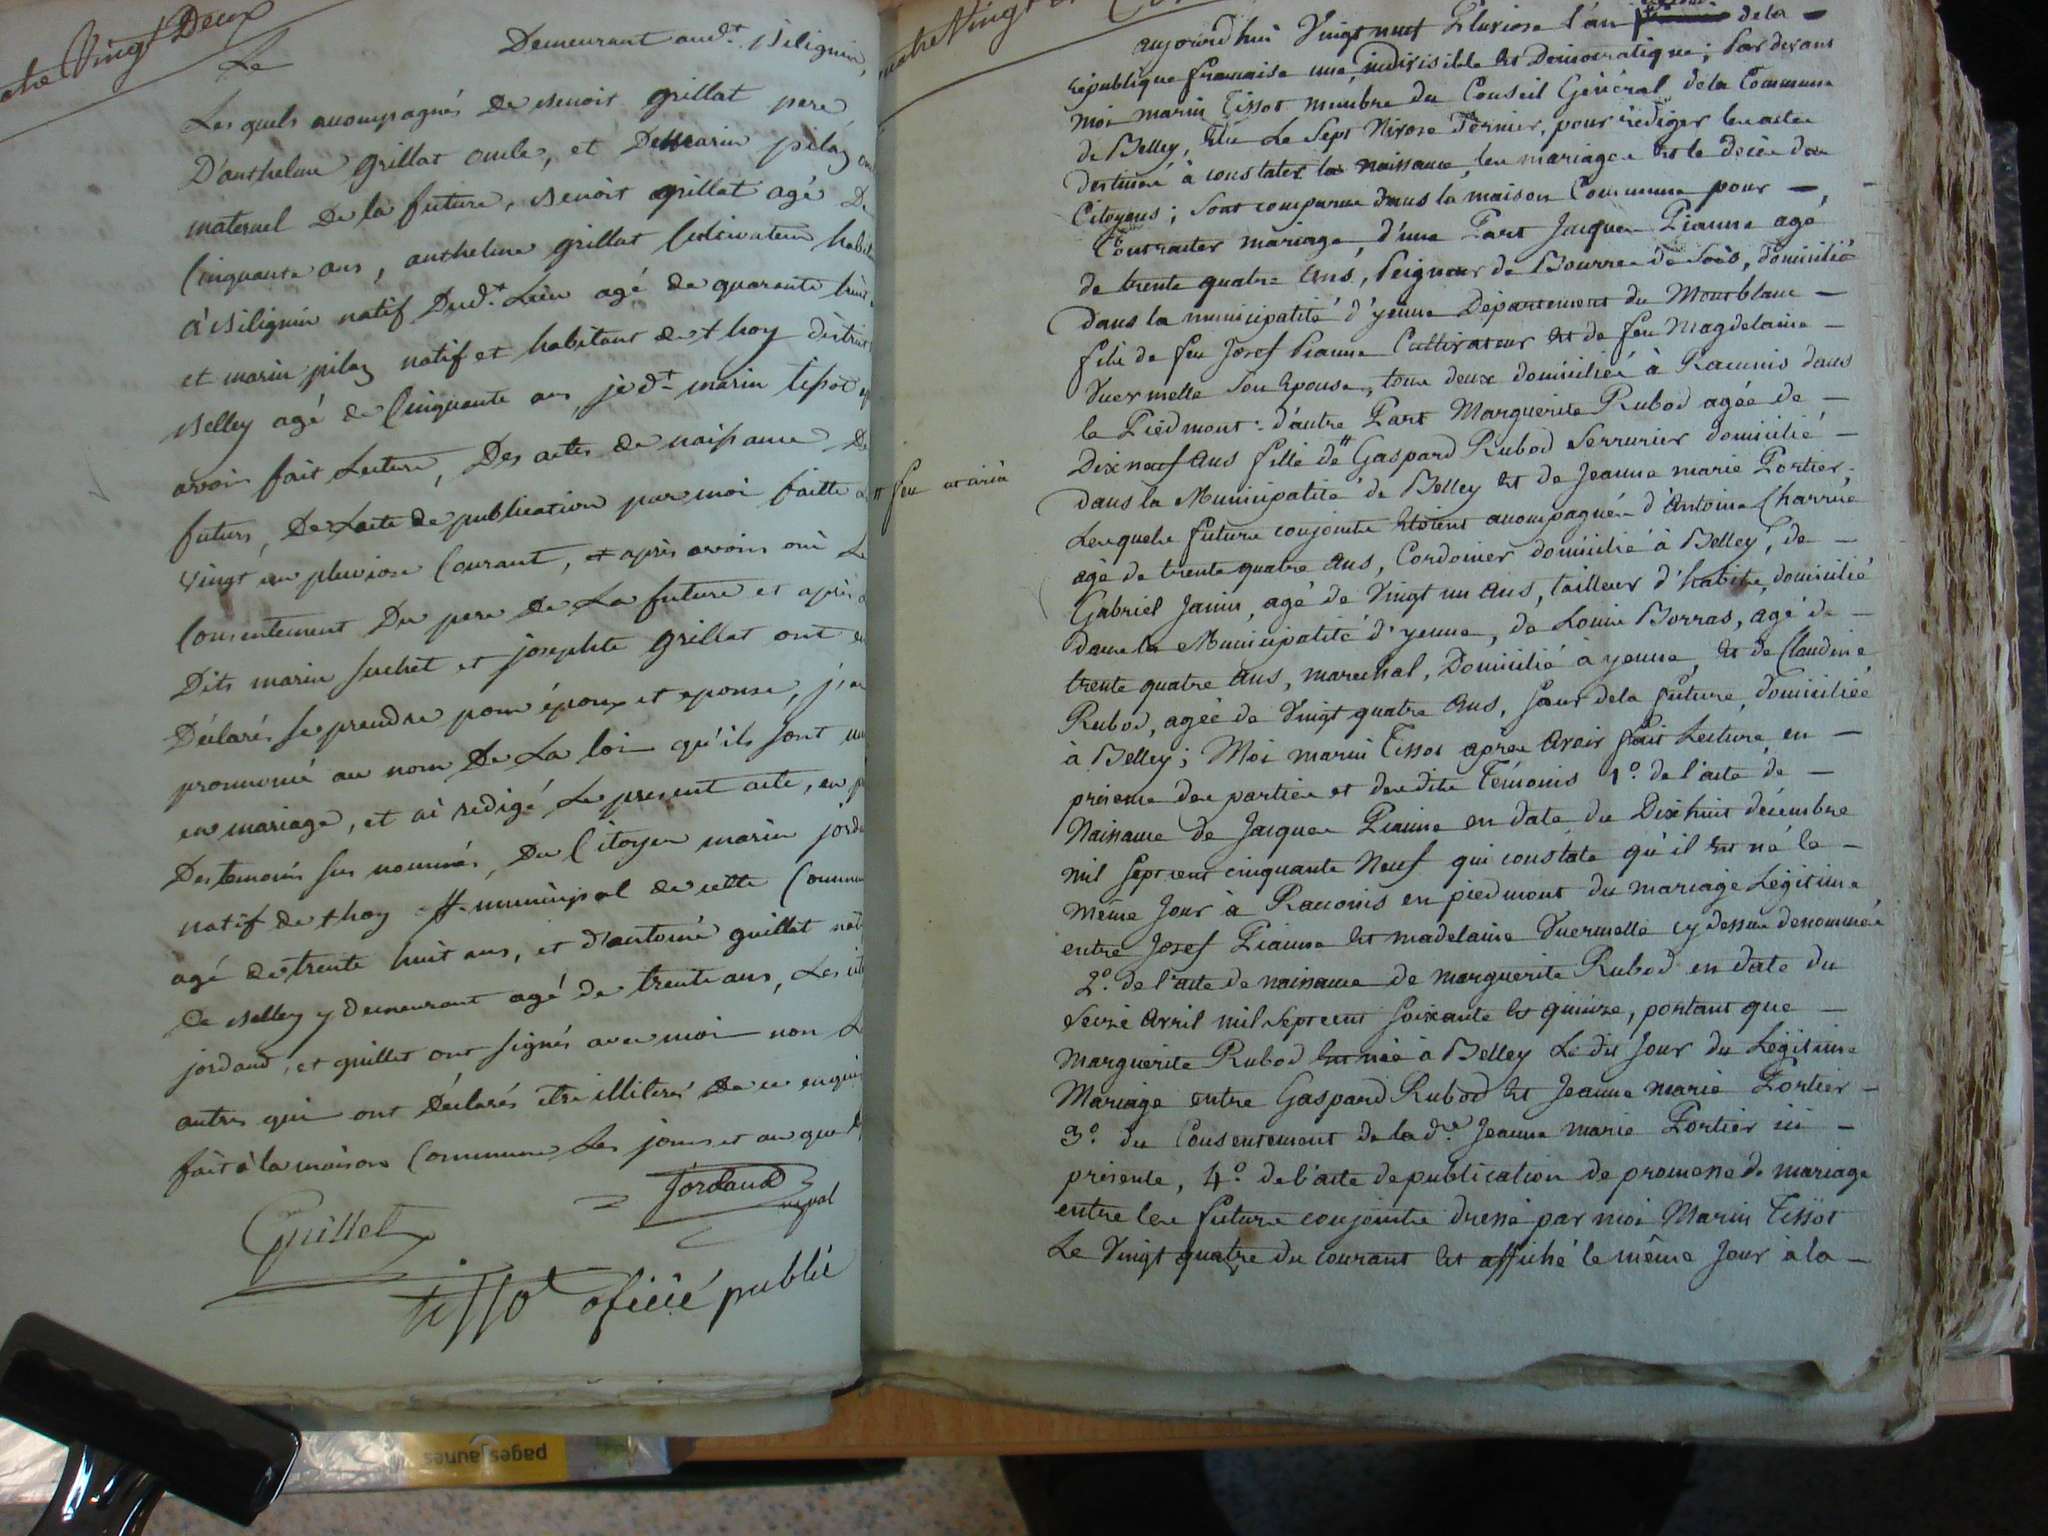 Vingt Deux
Demeurant aud.t Bilignin,
Le
Lesquels accompagnés De Benoit grillat pere
D'anthelme grillat oncle, et De marin pilaz
maternel De la future, Benoit grillat agé De
Cinquante ans, anthelme grillat Cultivateur
à Bilignin natif Dud.t Lieu agé de quarante
et marin pilaz natif et habitant de thoy district
Belley agé de Cinquante ans, je d.t marin tissot
avoir fait Lecture, Des actes de naissance De
futurs, De Lacte de publication par moi faitte
Vingt un pluviose Courant, et après avoir oui Le
Consentement Du pere De La future et après
Dits marin suchet et josephte grillat ont
Déclarés se prendre pour époux et epouse, j'ai
prononcé au nom De La loi qu'ils sont
en mariage, et ai redigé Le present acte, en
Des temoins sus nommés, Du Citoyen marin
natif de thoy off. municipal de cette
agé de trente huit ans, et d'antoine guillot
De Belley y Demeurant agé de trente ans, Les
jordand, et guillot ont signés avec moi non
autres qui ont Déclarés être illiterés De ce
fait à la maison Commune Les jours et an que
Jordand
mpal
Guillot
tissot oficié publié
quatre Vingt
aujourd'hui Vingt neuf Pluviose l'an de la —
république francaise une, indivisible et Democratique; Par devant
moi marin Tissot membre du Conseil Général de la Commune
de Belley, élu Le Sept Nivose Dernier, pour rédiger les actes
destinés à constater la naissance, les mariages et le décès des
Citoyens; sont comparus dans la maison Commune pour —
Contracter mariage, d'une Part Jacques Pianne agé
de trente quatre ans, Peigneur de Bourre de Soès, domicilié
dans la municipalité d'yenne Departement du Montblanc —
fils de feu Josef Pianne Cultivateur et de feu Magdelaine —
Vuermelle son Epouse, tous deux domiciliés à Raconis dans
le Piedmont: d'autre Part Marguerite Rubod agée de —
Dix neuf ans fille de # Gaspard Rubod Serrurier domicilié —
# feu
dans la Municipalité de Belley et de Jeanne marie Portier.
Lesquels futurs conjoints étoient accompagnés d'Antoine Charvié
agé de trente quatre ans, Cordonier domicilié à Belley, de —
Gabriel Janin, agé de Vingt un ans, tailleur d'habits, domicilié
dans la Municipalité d'yenne, de Louis Borras, agé de —
trente quatre ans, marechal, Domicilié à yenne, et de Claudine
Rubod, agée de Vingt quatre ans, sœur de la future, domiciliée
à Belley; Moi marin Tissot après avoir fait Lecture, en —
présence des parties et desdits Témoins 1.º de l'acte de —
Naissance de Jacques Pianne en date du Dix huit décembre
mil sept cent cinquante Neuf qui constate qu'il est né le —
même Jour à Raconis en piedmont du mariage Légitime
entre Josef Pianne et madelaine Vuermelle cy dessus denommés
2.º de l'acte de naissance de marguerite Rubod en date du
Seize Avril mil Sept cent soixante et quinze, portant que —
Marguerite Rubod est née à Belley Le dit Jour du Légitime
Mariage entre Gaspard Rubod et Jeanne marie Portier —
3.º du Consentement de lad.te Jeanne marie Portier ici —
présente, 4.º de l'acte de publication de promesse de mariage
entre les futurs conjoints dressé par moi Marin Tissot
Le Vingt quatre du courant et affiché le même Jour à la —
pages jaunes